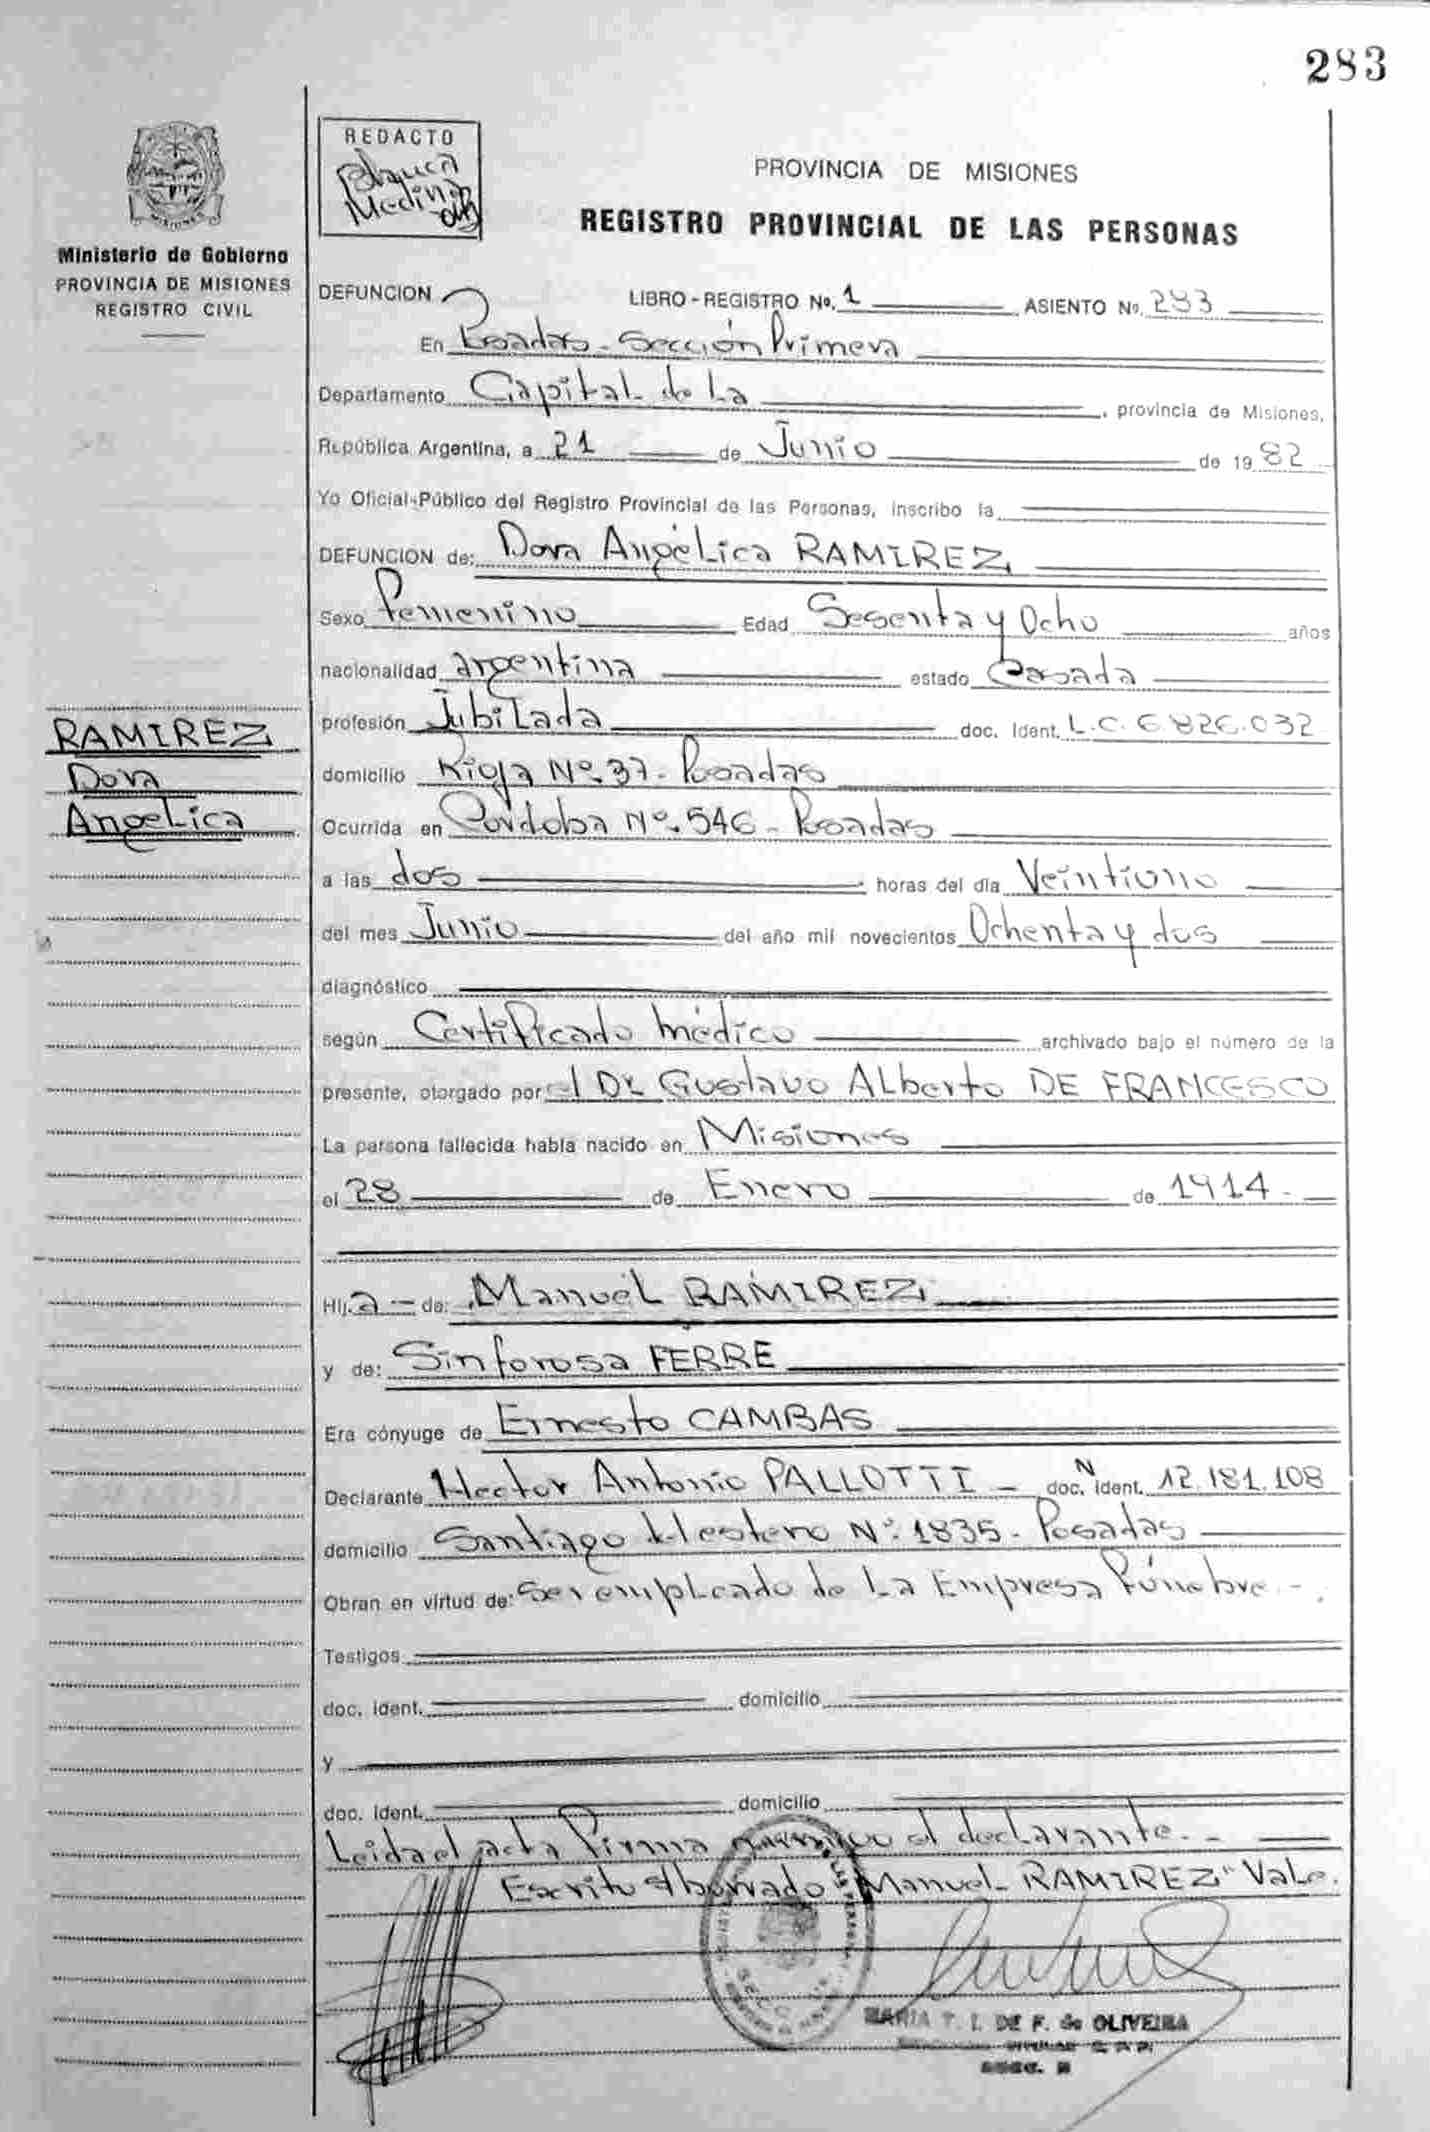 283
REDACTO
Blanca
Medina
PROVINCIA DE MISIONES
REGISTRO PROVINCIAL DE LAS PERSONAS
Ministerio de Gobierno
PROVINCIA DE MISIONES
REGISTRO CIVIL
DEFUNCION LIBRO-REGISTRO No. 1 ASIENTO No. 283
En Posadas - Sección Primera
Departamento Capital de La, provincia de Misiones,
República Argentina, a 21 de Junio de 1982
Yo Oficial Público del Registro Provincial de las Personas, inscribo la
DEFUNCION de: Dora Angélica RAMIREZ
Sexo Femenino Edad Sesenta y Ocho años
nacionalidad argentina estado Casada
profesión Jubilada doc. Ident. L.C. 6.826.032
RAMIREZ
Dora
Angelica
domicilio Rioja Nº 37 - Posadas
Ocurrida en Córdoba Nº. 546 - Posadas
a las dos horas del día Veintiuno
del mes Junio del año mil novecientos Ochenta y dos
diagnóstico
según Certificado Médico archivado bajo el número de la
presente, otorgado por el Dr. Gustavo ALberto DE FRANCESCO
La persona fallecida había nacido en Misiones
el 28 de Enero de 1914.
Hij a - de: Manuel RAMIREZ
y de: Sinforosa FERRE
Era cónyuge de Ernesto CAMBAS
Declarante Hector Antonio PALLOTTI - doc. N Ident. 12.181.108
domicilio Santiago del estero Nº. 1835 - Posadas
Obran en virtud de: Ser empleado de La Empresa Fúnebre. -.
Testigos
doc. ident. domicilio
y
doc. ident. domicilio
Leida el acta Firma conmigo el declarante. -
Escrito s/borrado "Manuel RAMIREZ" Vale.
MARIA T. I. DE F. de OLIVEIRA